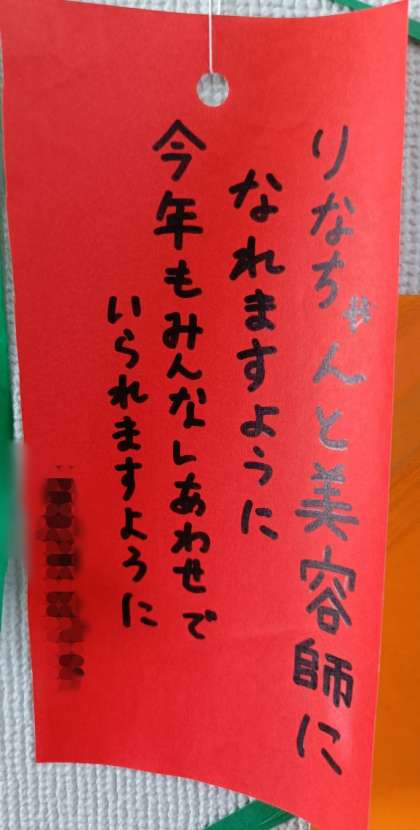 りなちゃんと美容師に
なれますように
今年もみんなしあわせで
いられますように